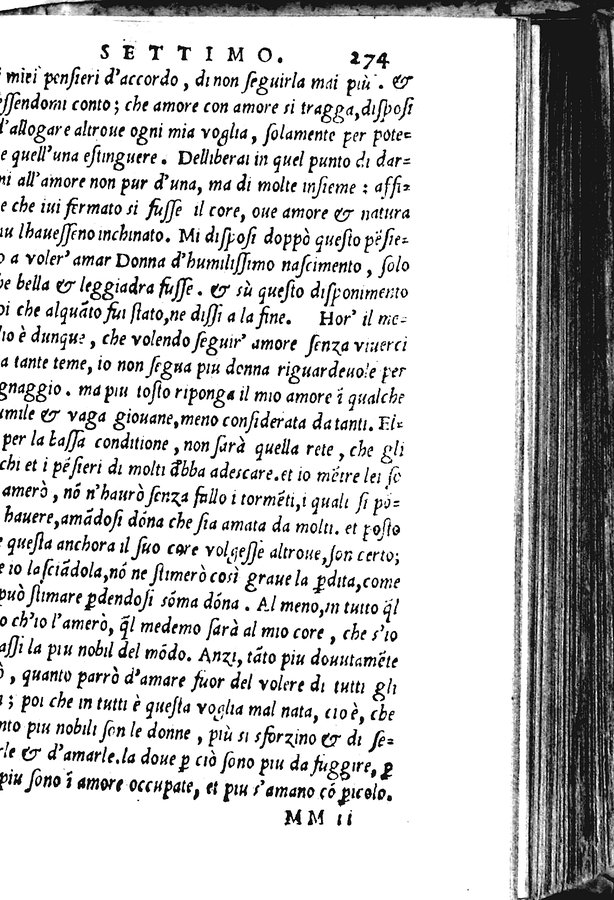 SETTIMO. 274
i miei pensieri d'accordo, di non seguirla mai più. &
essendomi conto; che amore con amore si tragga, disposi
d'allogare altroue ogni mia voglia, solamente per pote=
e quell'una estinguere. Delliberai in quel punto di dar=
mi all'amore non pur d'una, ma di molte insieme: affi=
e che iui fermato si fusse il core, oue amore & natura
u lhauesseno inchinato. Mi disposi doppò questo pẽsie=
o a voler' amar Donna d'humilissimo nascimento, solo
he bella & leggiadra fusse. & sù questo disponimento
oi che alquãto fui stato, ne dissi a la fine. Hor' il me=
lio è dunque, che volendo seguir' amore senza viuerci
a tante teme, io non segua piu donna riguardeuole per
gnaggio. ma piu tosto riponga il mio amore ĩ qualche
umile & vaga giouane, meno considerata da tanti. El=
per la bassa conditione, non sarà quella rete, che gli
chi et i pẽsieri di molti dẽbba adescare. et io mẽtre lei so
amerò, nõ n'haurò senza fallo i tormẽti, i quali si po=
hauere, amãdosi dõna che sia amata da molti. et posto
e questa anchora il suo core volgesse altroue, son certo;
e io lasciãdola, nõ ne stimerò così graue la ꝑdita, come
può stimare ꝑdendosi sõma dõna. Al meno, in tutto q̃l
o ch'io l'amerò, q̃l medemo sarà al mio core, che s'io
assi la piu nobil del mõdo. Anzi, tãto piu douutamẽte
ò, quanto parrò d'amare fuor del volere di tutti gli
i; poi che in tutti è questa voglia mal nata, cio è, che
nto piu nobili son le donne, più si sforzino & di se=
rle & d'amarle. la doue ꝑ ciò sono piu da fuggire, ꝑ
piu sono ĩ amore occupate, et piu s'amano cõ ꝑicolo.
MM ii